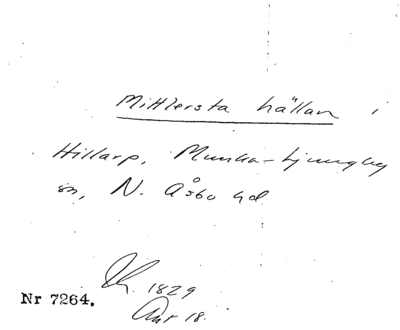 Mittlersta hällan i
Hillarp, Munka-Ljungby
sn, N. Åsbo hd.
1829
Nr 7264.
Ant 18.